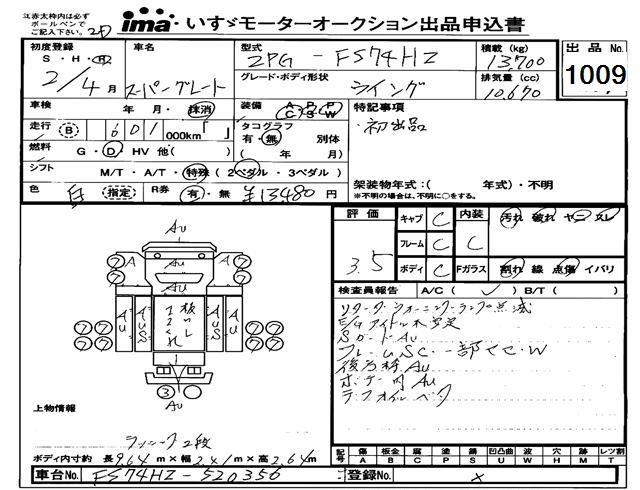 江赤太枠内は必ず
ボールペンで
ご記入下さい。
ima いすゞモーターオークション出品申込書
初度登録 S・H・R 2/4月
車名 スーパーグレート
型式 2PG-FS74HZ
積載 (kg) 13,700
出品No. 1009
グレード・ボディ形状 ウイング
排気量 (cc) 10,670
車検 年 月・抹消
装備 A・P・P C・S・W
特記事項
・初出品
走行 B 601,000km「 」
タコグラフ 有・無 別体
( 年 月)
燃料 G・D・HV 他( )
シフト M/T・A/T・特殊 (2ペダル・3ペダル)
架装物年式:( 年式)・不明
※不明の場合は、不明に○をする。
色 白 指定 R券 有・無 ¥13480円
評価 3.5
キャブ C
フレーム C
ボディ C
内装 C
汚れ 破れ ヤニ スレ
Fガラス 割れ 線 点傷 イバリ
検査員報告 A/C( ) B/T( )
E/Gアイドル不安定
Sガード AU
フレームSC・一部サビ・W
後方枠 AU
ボデー内 AU
上物情報
ラッシング2段
ボディ内寸約 長9.64m×幅2.41m×高2.64m
記号 傷A 板金B 腐C 塗P 錆S 凹凸曲U 波W 穴H 跡M レンズ割T
車台No. FS74HZ-520356
登録No. ×